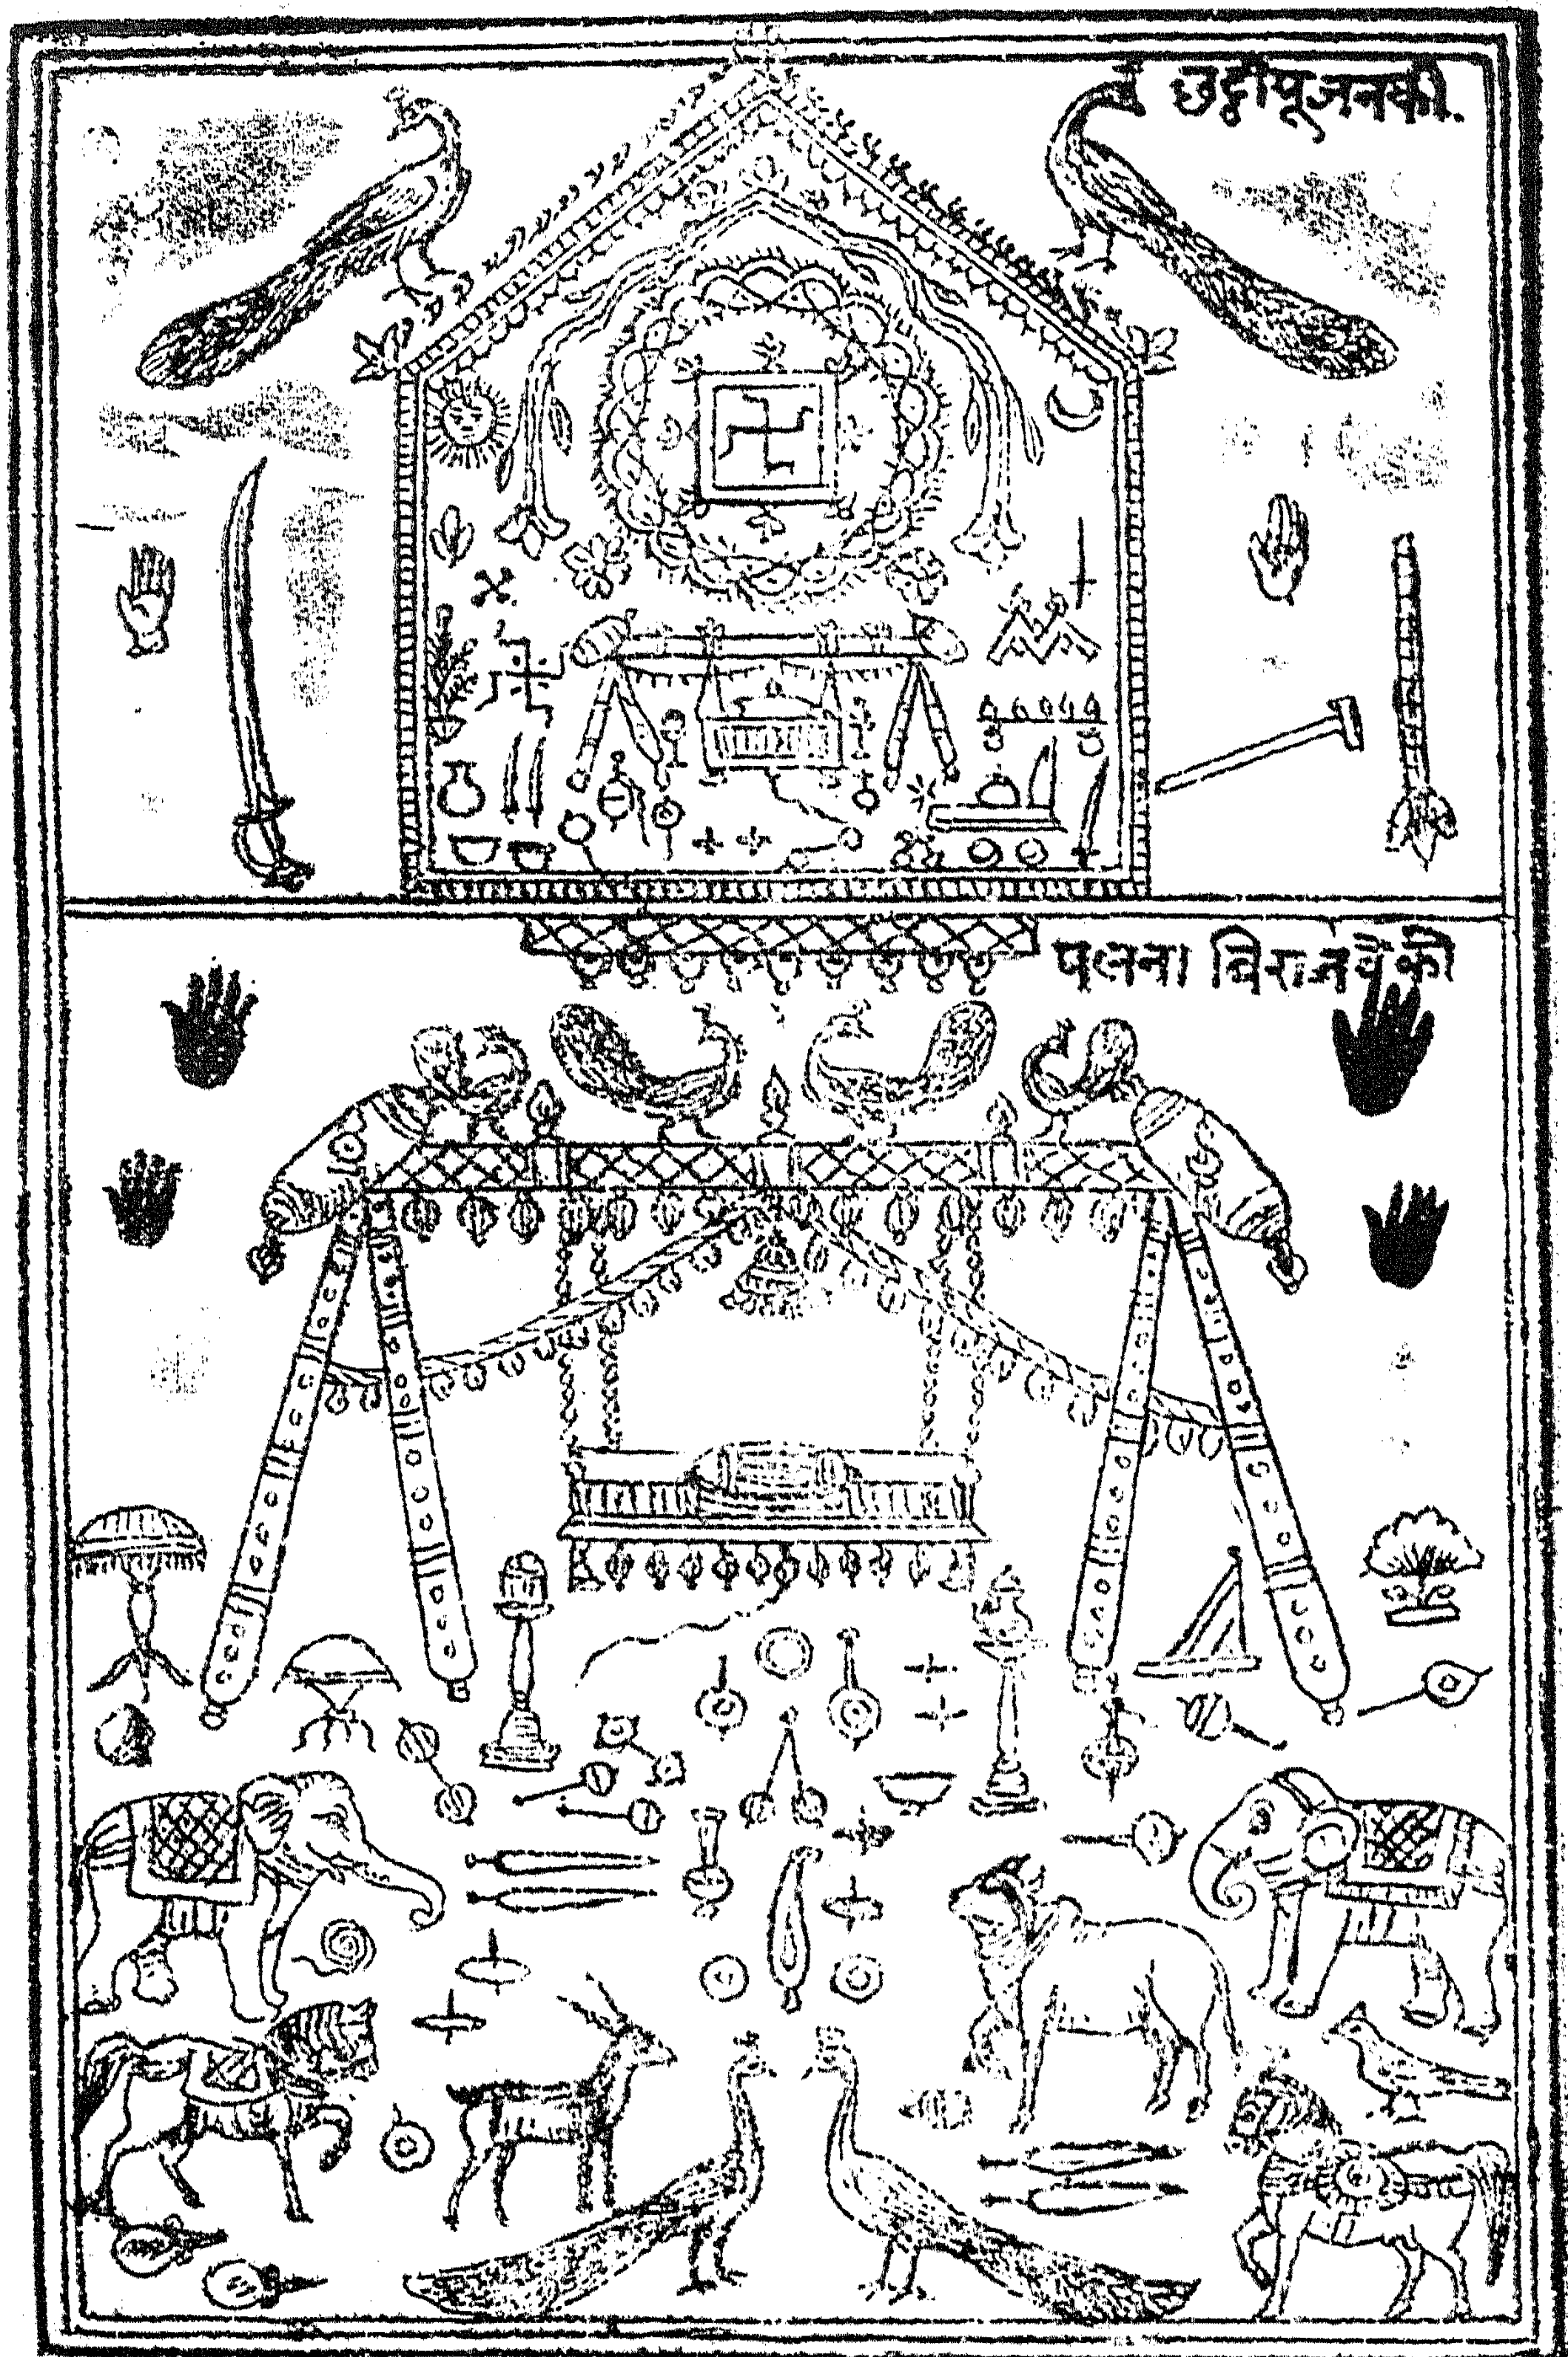 छट्ठीपूजनकी.
पलना विराजवैकौ